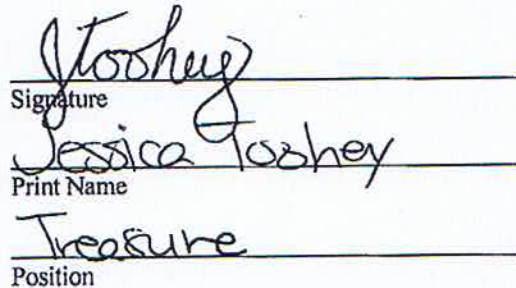 JToohey
Signature
Jessica Toohey
Print Name
Treasure
Position